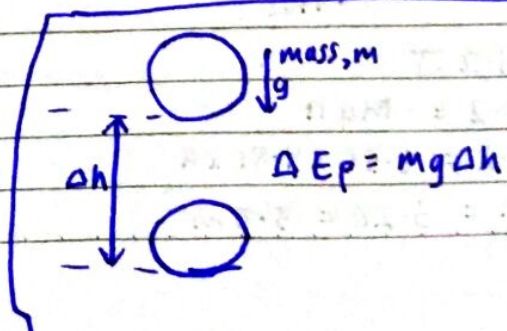 mass, m
g
Δh
Δ Ep = mg Δh